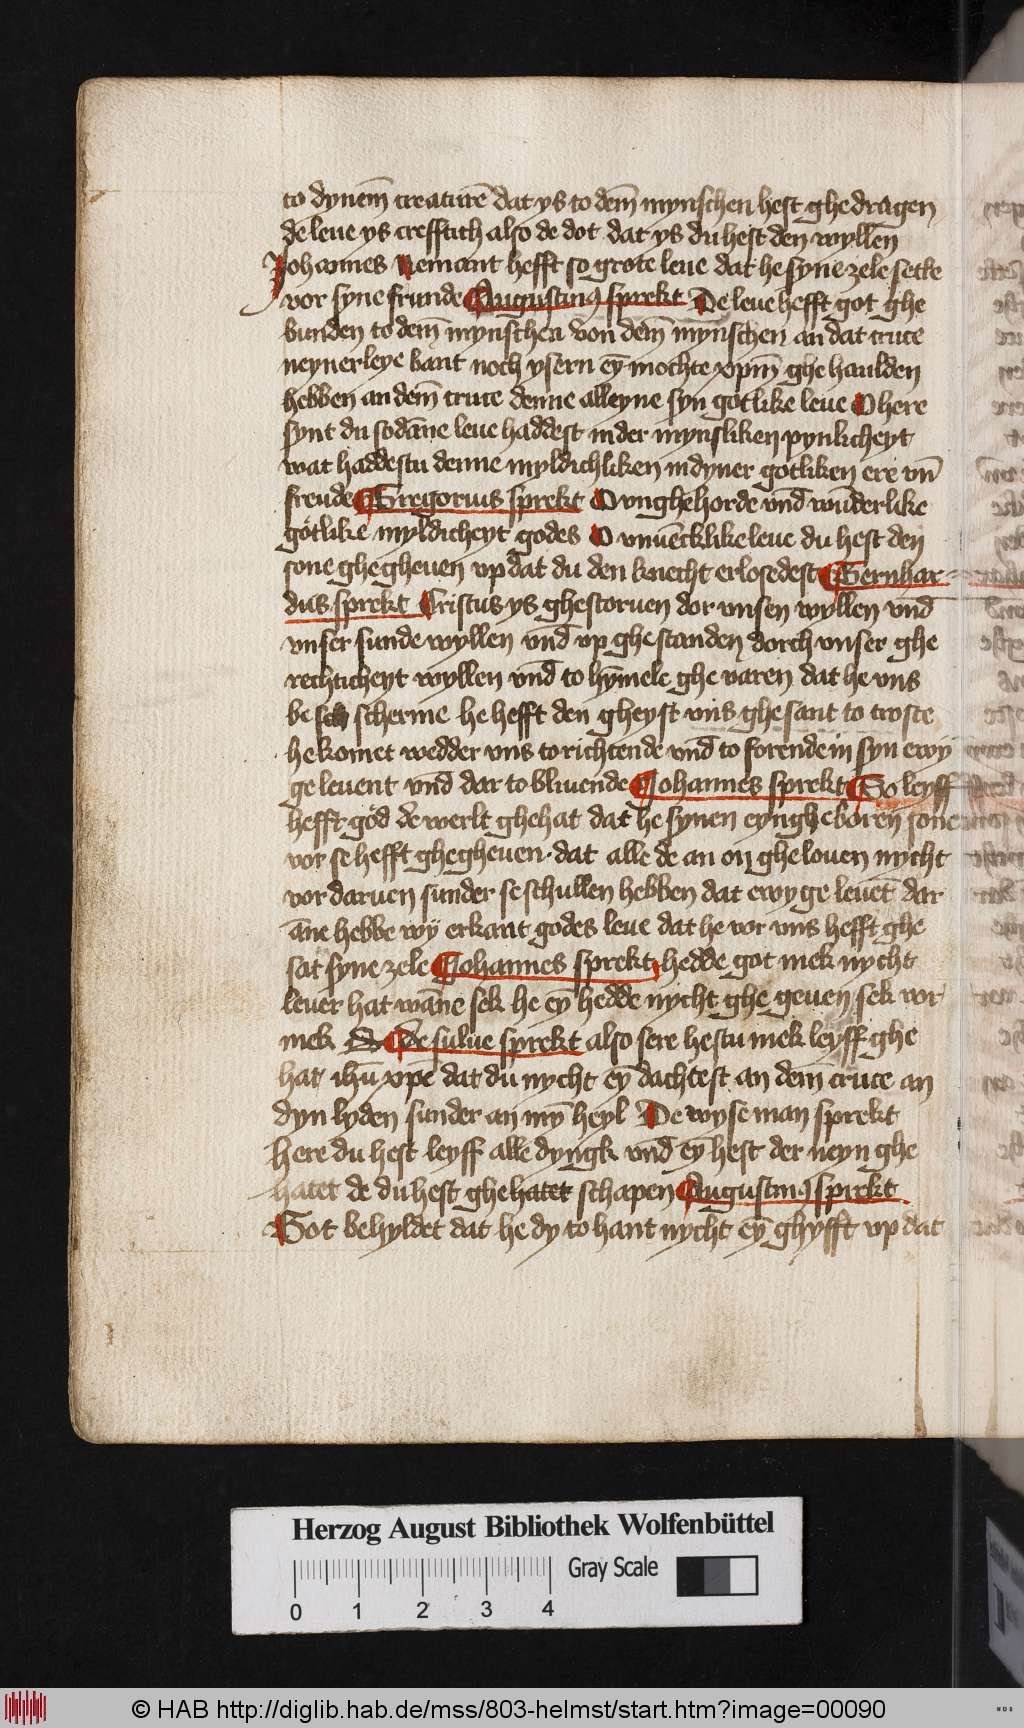 to dynem̄ creaturē dat ys to dem̄ mynschen hest ghedragen
de leue ys crefftich also de dot dat ys du hest den wyllen
Johannes Nemant hefft so grote leue dat he syne zele sette
vor syne frunde Augustinꝰ sprekt De leue hefft got ghe
bunden to dem̄ mynschen von dem̄ mynschen an dat cruce
neynerleye bant noch ysern eȳ mochte xpm̄ ghehaulden
hebben an dem̄ cruce denne alleyne syn gotlike leue O here
synt du sodāne leue haddest in der mynsliken pynlicheyt
wat haddestu denne myldichliken in dyner gotliken ere vn̄
freude Gregorius sprekt O vnghehorde vnd wunderlike
gotlike myldicheyt godes O vnuēcklike leue du hest den
sone ghegheuen vp dat du den knecht erlosedest Bernhar
dus sprekt Cristus ys ghestoruen dor vnsen wyllen vnd
vnser sunde wyllen vnd vp ghestanden dorch vnser ghe
rechticheyt wyllen vnd to hȳmele ghe varen dat he vns
be scherme he hefft den gheyst vns ghesant to troste
he komet wedder vns to richtende vnd to forende in syn ewy
ge leuent vnd dar to bliuende Johannes sprekt So leyff
hefft god de werlt ghehat dat he synen eyngheboren sone
vor se hefft ghegheuen dat alle de an on ghelouen nycht
vordaruen sunder se schullen hebben dat ewyge leuēt dar
āne hebbe wy erkant godes leue dat he vor vns hefft ghe
sat syne zele Johannes sprekt hedde got mek nycht
leuer hat wāne sek he eȳ hedde nycht ghe geuen sek vor
mek De sulue sprekt also sere hestu mek leyff ghe
hat ihū xpē dat du nycht eȳ dachtest an dem̄ cruce an
dyn lyden sunder an mȳ heyl De wyse man sprekt
here du hest leyff alle dyngk vnd eȳ hest der neyn ghe
hatet de du hest ghehatet schapen Augustinꝰ sprekt
Got behyldet dat he dy to hant nycht eȳ ghyfft vp dat
Herzog August Bibliothek Wolfenbüttel
0 1 2 3 4 Gray Scale
© HAB http://diglib.hab.de/mss/803-helmst/start.htm?image=00090